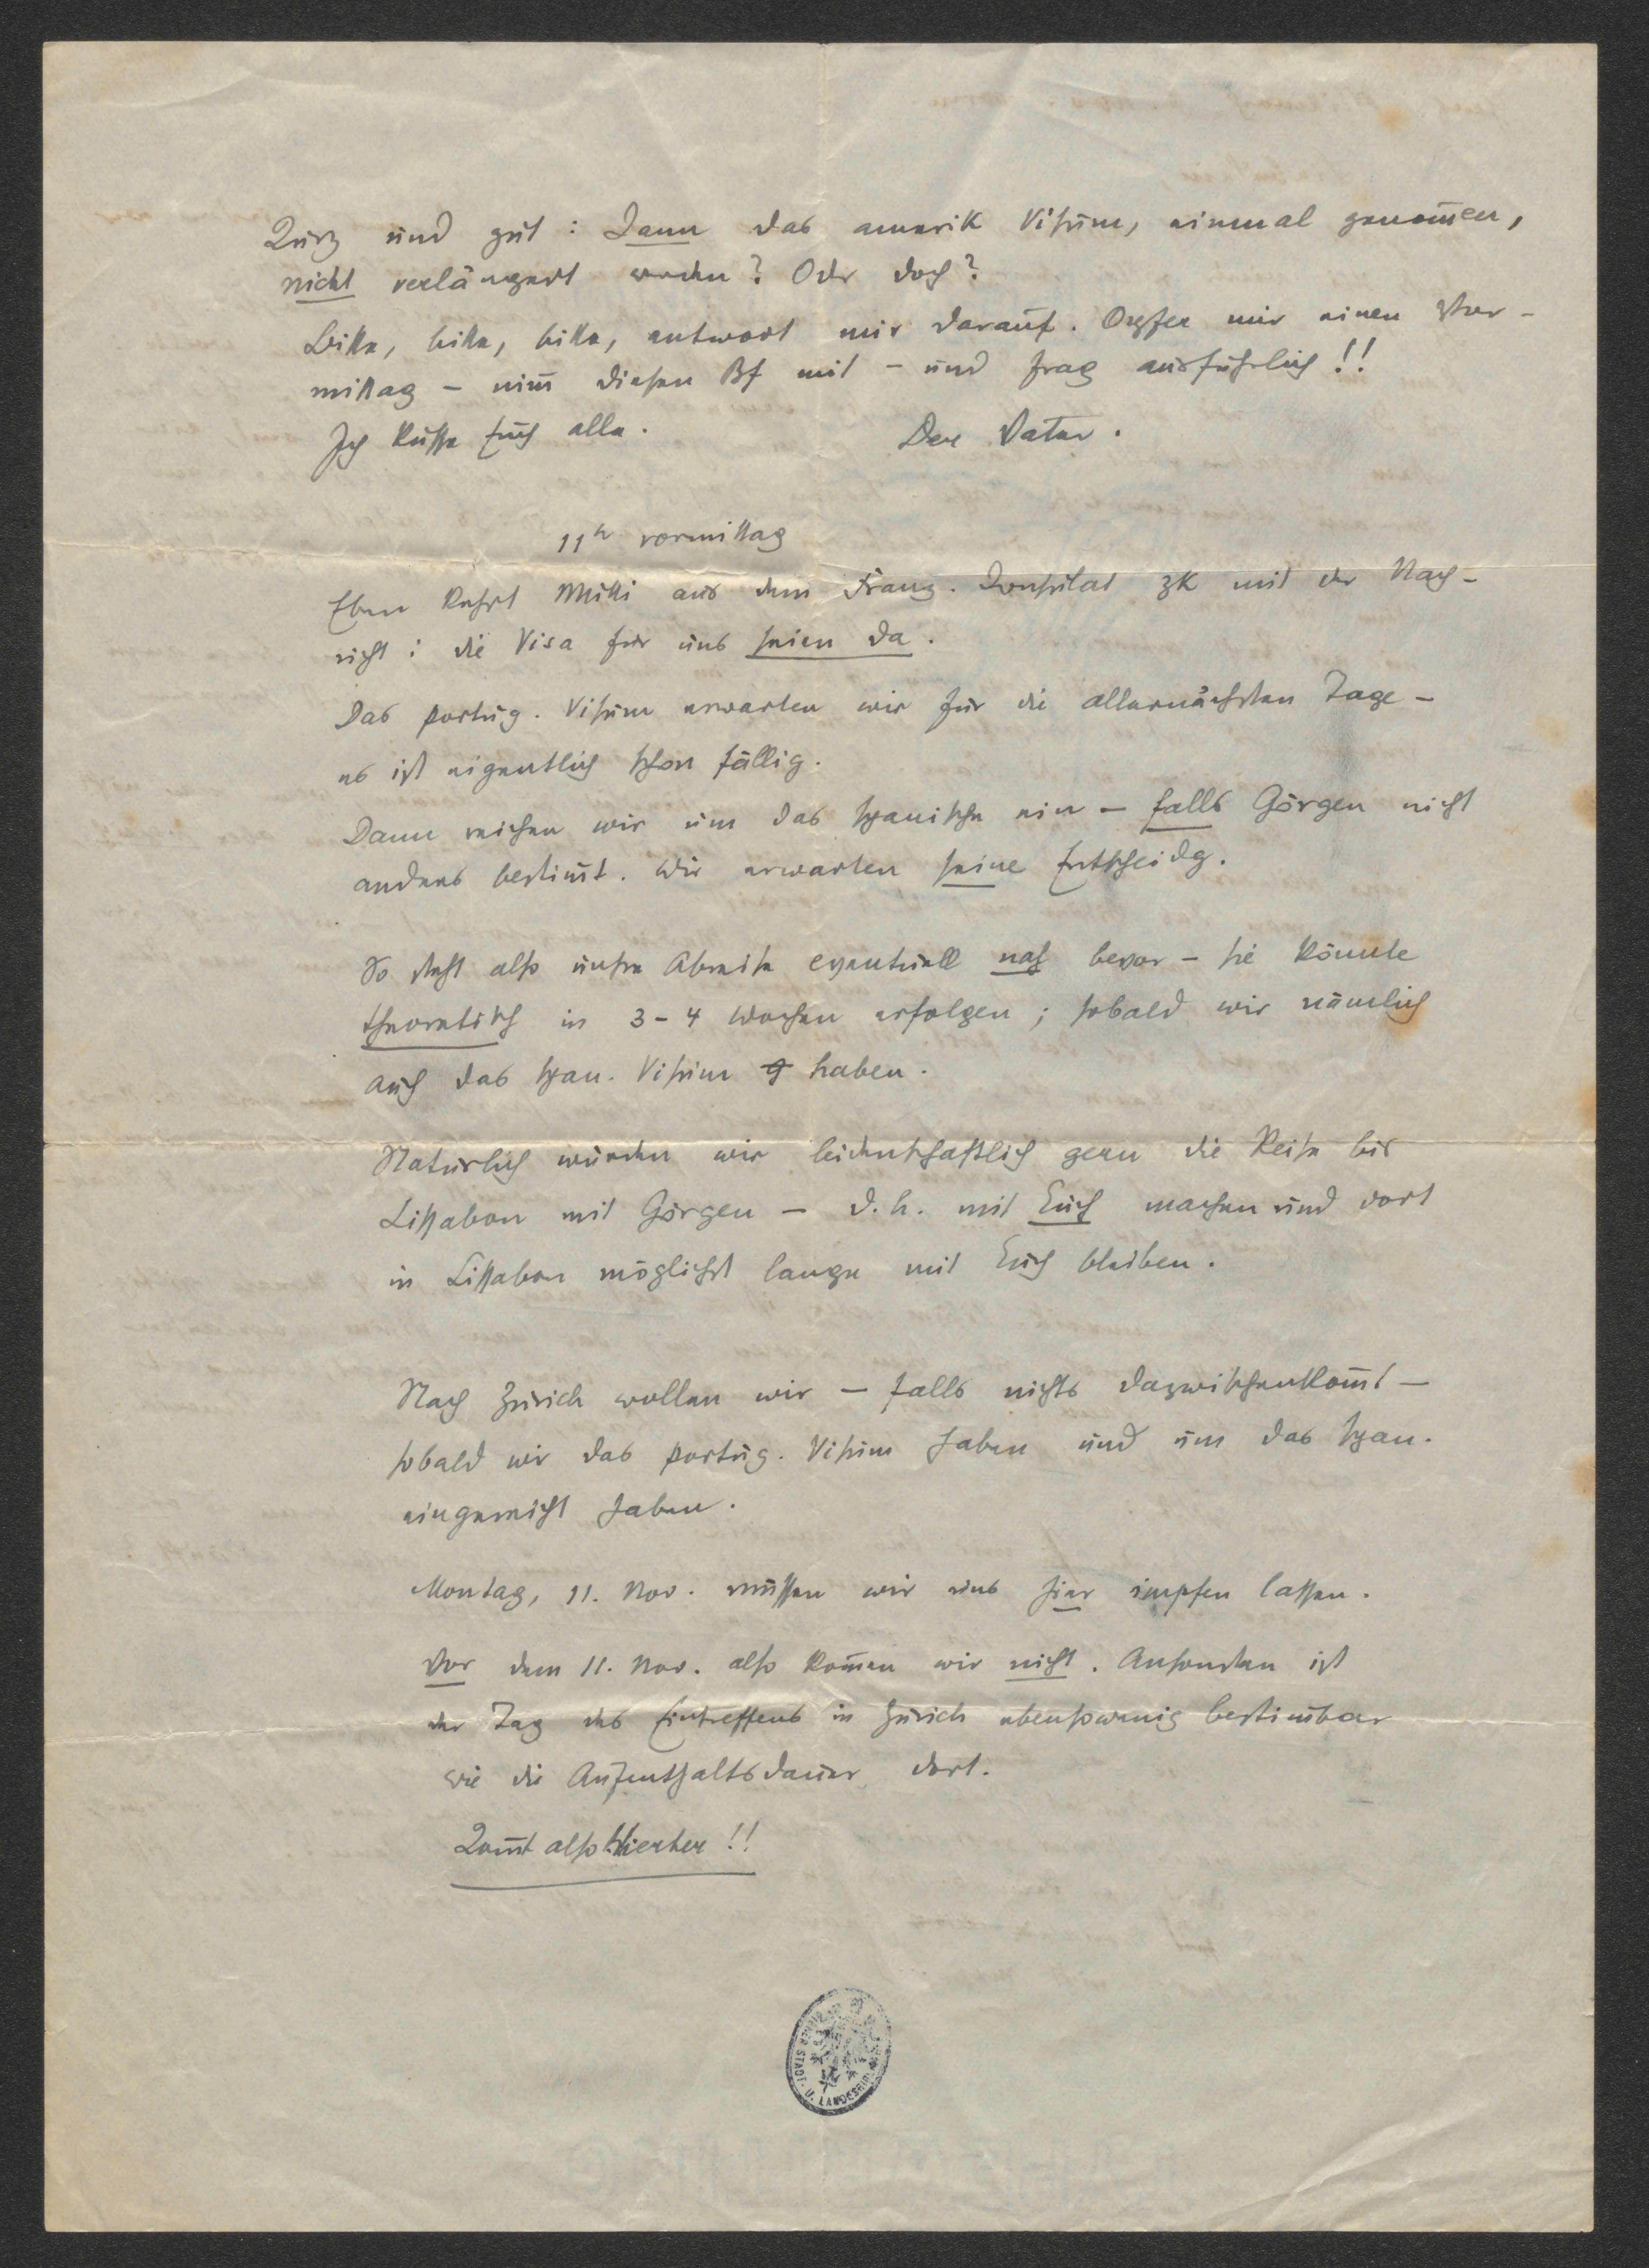 Kurz und gut: Kann das amerik Visum, einmal genom̅en,
nicht verlängert werden? Oder doch?
Bitte, bitte, bitte, antwort mir darauf. Opfer mir einen Vor-
mittag – nim̅ diesen Bf mit – und frag ausführlich!!
Ich küsse Euch alle. Der Vater.
11h vormittag
Eben kehrt Mutti aus dem Franz. Konsulat zk mit der Nach-
richt: die Visa für uns seien da.
Das portug. Visum erwarten wir für die allernächsten Tage –
es ist eigentlich schon fällig.
Dann reichen wir um das spanische ein – falls Görgen nicht
anders bestim̅t. Wir erwarten seine Entscheidg.
So steht also unsre Abreise eventuell nah bevor – sie könnte
theoretisch in 3–4 Wochen erfolgen; sobald wir nämlich
auch das span. Visum haben.
Natürlich würden wir leidenschaftlich gern die Reise bis
Lissabon mit Görgen – d.h. mit Euch machen und dort
in Lissabon möglichst lange mit Euch bleiben.
Nach Zürich wollen wir – falls nichts dazwischenkom̅t –
sobald wir das portug. Visum haben und um das span.
eingereicht haben.
Montag, 11. Nov. müssen wir uns hier impfen lassen.
Vor dem 11. Nov. also kom̅en wir nicht. Ansonsten ist
der Tag des Eintreffens in Zürich ebensowenig bestim̅bar
wie die Aufenthaltsdauer dort.
Kom̅t also hierher!!
STADT- U. LANDESBIBL